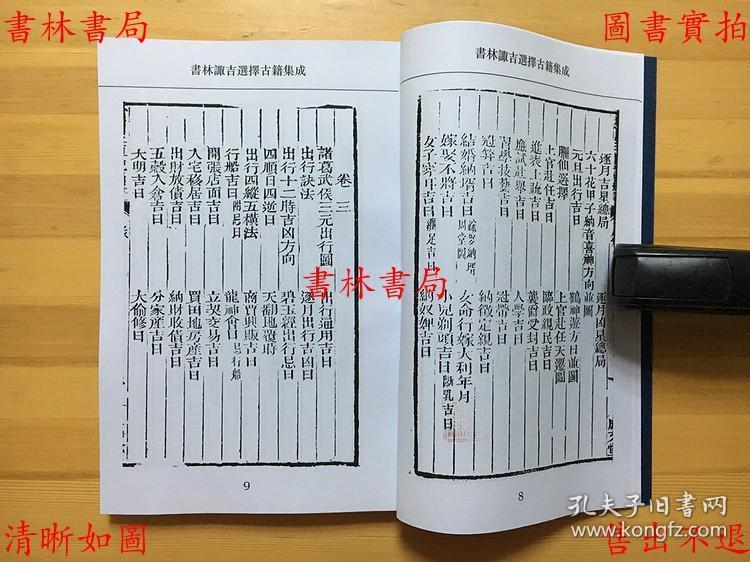 書林書局
圖書實拍
書林諏吉選擇古籍集成
逐月吉星總局
逐月凶星總局
六十花甲子納音喜神方向並圖
元旦出行吉日
鶴神遊方日並圖
臞仙選擇
上官赴任天遷圖
上官赴任吉日
臨政親民吉日
進表上疏吉日
襲爵受封吉日
應試赴舉吉日
入學吉日
習學技藝吉日
冠帶吉日
冠笄吉日
納徵定親吉日
結婚納壻吉日
嫁娶納壻周堂圖
女命行嫁大利年月
嫁娶不將吉日
小兒剃頭吉日
斷乳吉日
女子穿耳吉日
纏足吉日
納奴婢吉日
8
書林諏吉選擇古籍集成
卷三
諸葛武侯三元出行圖
出行通用吉日
出行訣法
逐月出行吉凶日
出行十二時吉凶方向
碧玉經出行忌日
四順日四逆日
天翻地覆時
出行四縱五橫法
商賈興販吉日
行船吉日
龍神會日
忌行船
開張店面吉日
立契交易吉日
入宅移居吉日
買田地房產吉日
出財放債吉日
納財收債吉日
五穀入倉吉日
分家產吉日
大明吉日
大偷修日
9
書林書局
清晰如圖
售出不退
孔夫子旧书网
www.kongfz.com